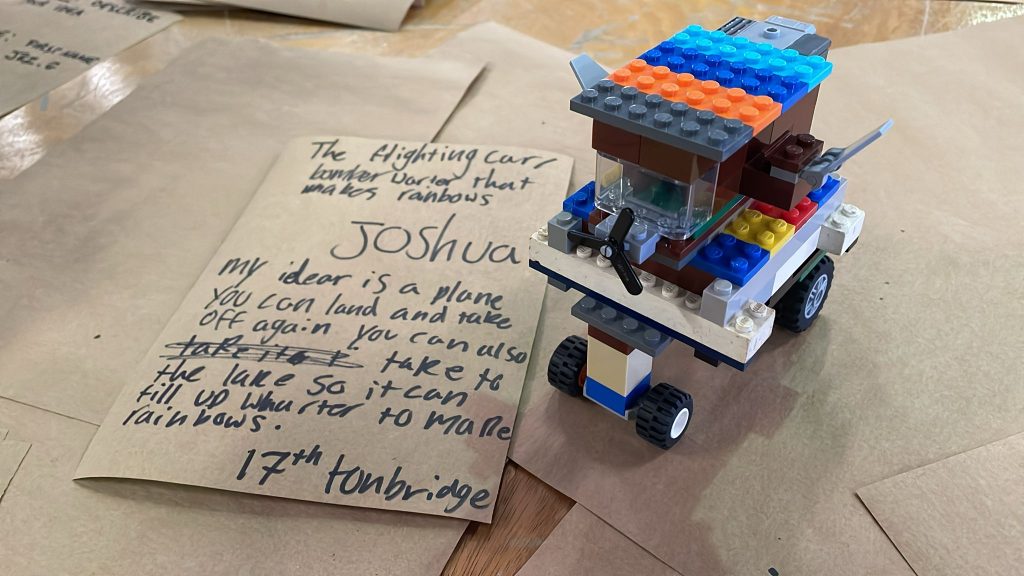 YOUR IDEA
JRZ. G
The flighting Cars
bomber warter that
makes rainbows
JOSHUA
My idear is a plane
you can land and take
off again you can also
take to
the lake so it can
fill up wharter to make
rainbows.
17th tonbridge